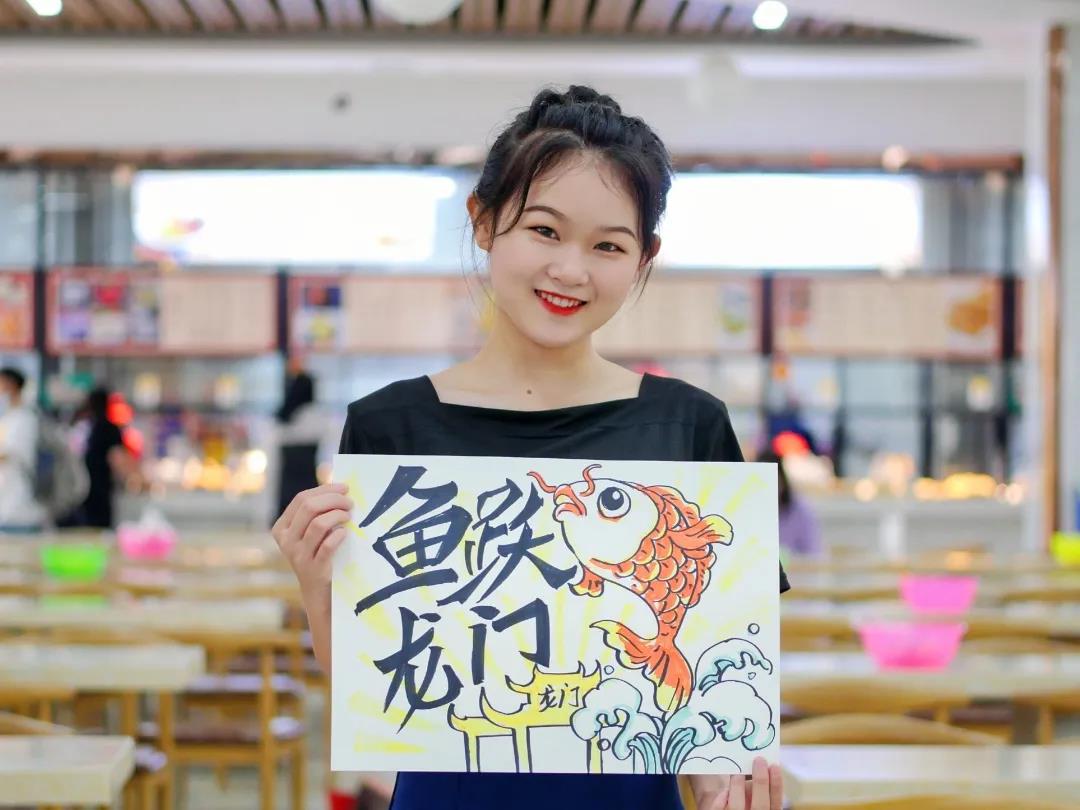 鱼跃
龙门
龙门